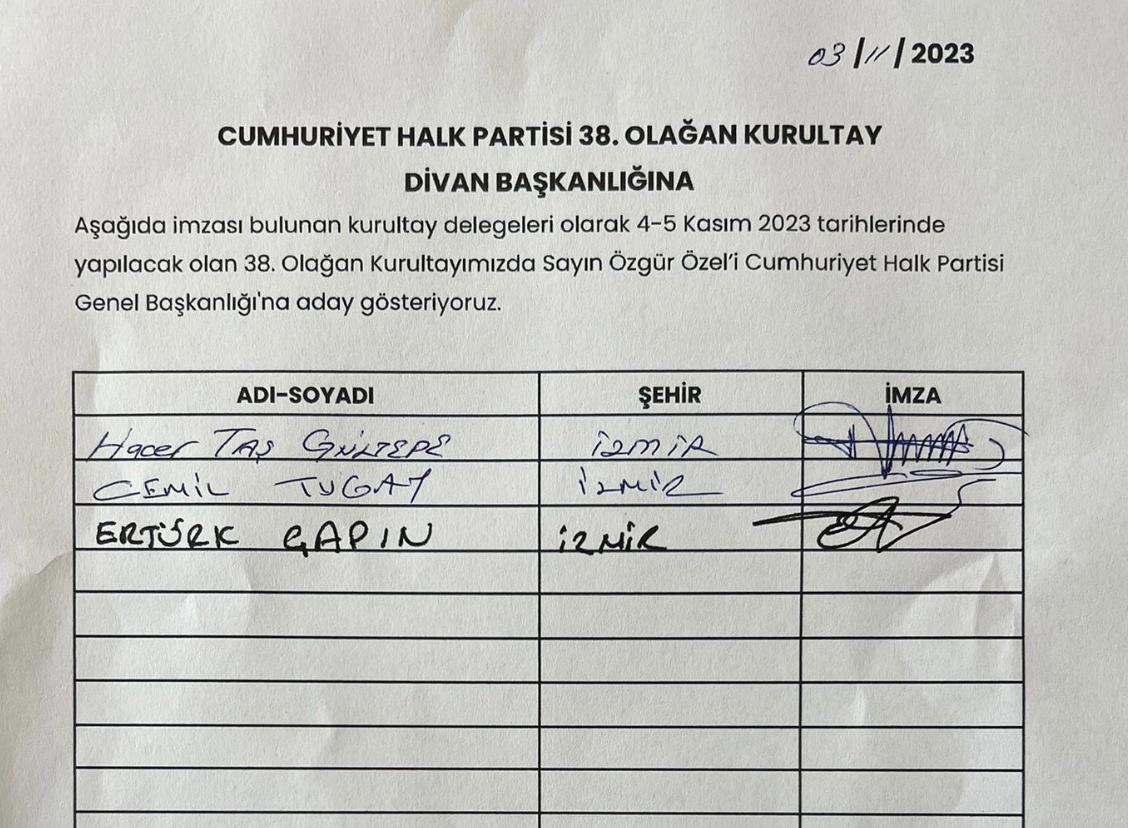 03/11/2023
CUMHURİYET HALK PARTİSİ 38. OLAĞAN KURULTAY
DİVAN BAŞKANLIĞINA
Aşağıda imzası bulunan kurultay delegeleri olarak 4-5 Kasım 2023 tarihlerinde
yapılacak olan 38. Olağan Kurultayımızda Sayın Özgür Özel’i Cumhuriyet Halk Partisi
Genel Başkanlığı'na aday gösteriyoruz.
ADI-SOYADI ŞEHİR İMZA
Hacer TAŞ GÜLTEPE İZMİR
CEMİL TUGAY İZMİR
ERTÜRK ÇAPIN İZMİR